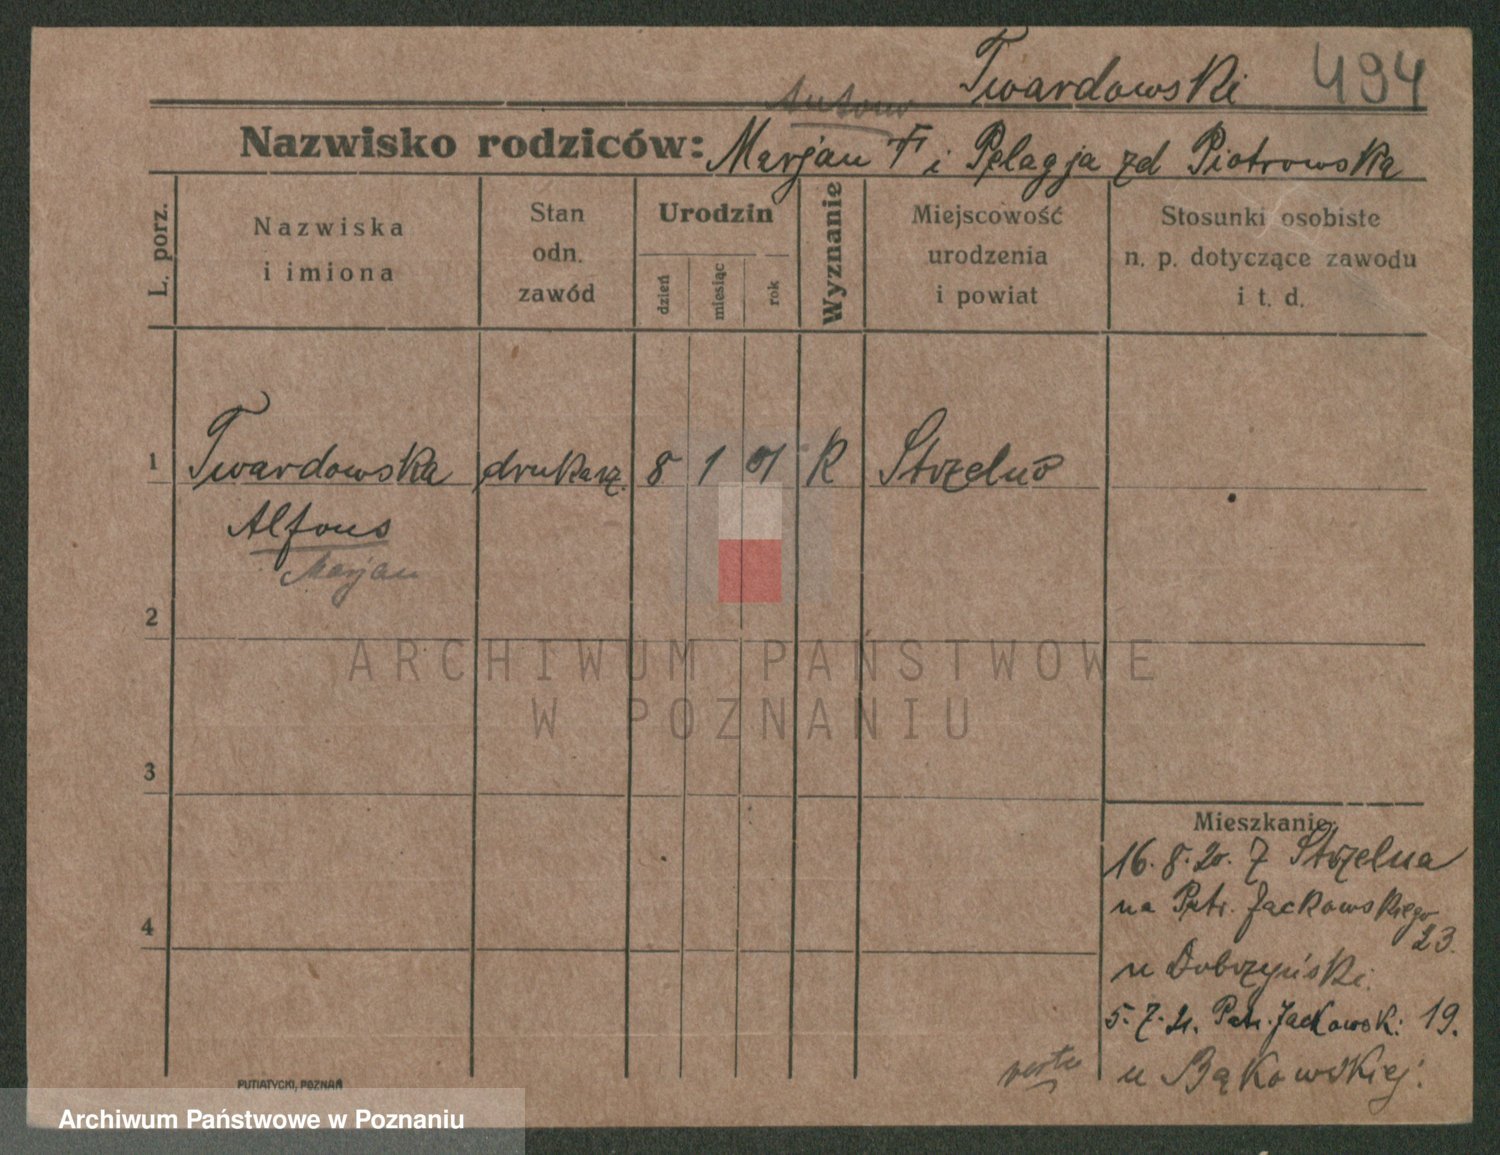 Twardowski 494
Antoni
Nazwisko rodziców: Marjan † i Pelagja zd Piotrowska
L. porz.
Nazwiska
i imiona
Stan
odn.
zawód
Urodzin
dzień
miesiąc
rok
Wyznanie
Miejscowość
urodzenia
i powiat
Stosunki osobiste
n. p. dotyczące zawodu
i t. d.
1 Twardowska drukarz. 8 1 01 K Strzelno
Alfons
Marjan
2
ARCHIWUM PAŃSTWOWE
W POZNANIU
3
4
Mieszkanie
16. 8. 20. z Strzelna
na Ptr. Jackowskiego
23.
u Dobrzyński.
5. 7. 21. Ptr. Jackowsk. 19.
u Bąkowskiej.
verte
PUTIATYCKI, POZNAŃ
Archiwum Państwowe w Poznaniu